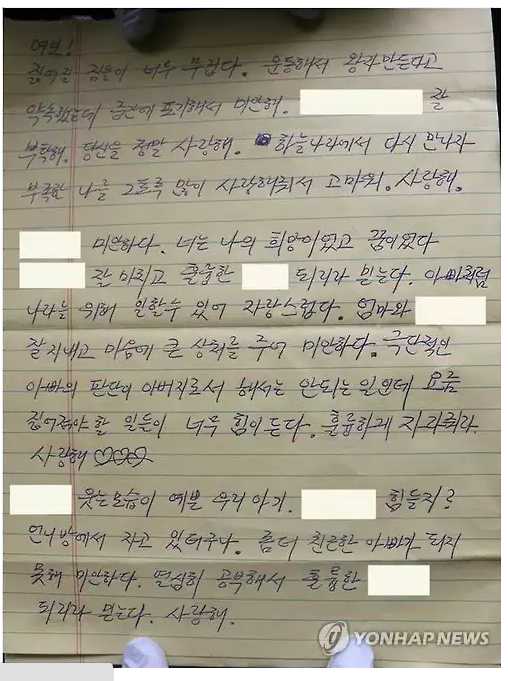 여보!
짊어질 짐들이 너무 무겁다. 운동해서 왕자만든다고
약속했는데 중간에 포기해서 미안해. 잘
부탁해. 당신을 정말 사랑해. 하늘나라에서 다시 만나자
부족한 나를 그토록 많이 사랑해줘서 고마워. 사랑해.
미안하다. 너는 나의 희망이었고 꿈이었다
잘 마치고 훌륭한 되리라 믿는다. 아빠처럼
나라를 위해 일할수 있어 자랑스럽다. 엄마와
잘지내고 마음에 큰 상처를 주어 미안하다. 극단적인
아빠의 판단이 아버지로서 해서는 안되는 일인데 요즘
짊어져야 할 일들이 너무 힘이 든다. 훌륭하게 자라줘라
사랑해 ♡♡♡
웃는모습이 예쁜 우리아기. 힘들지?
언니방에서 자고 있더구나. 좀더 친근한 아빠가 되지
못해 미안하다. 열심히 공부해서 훌륭한
되리라 믿는다. 사랑해.
YONHAP NEWS